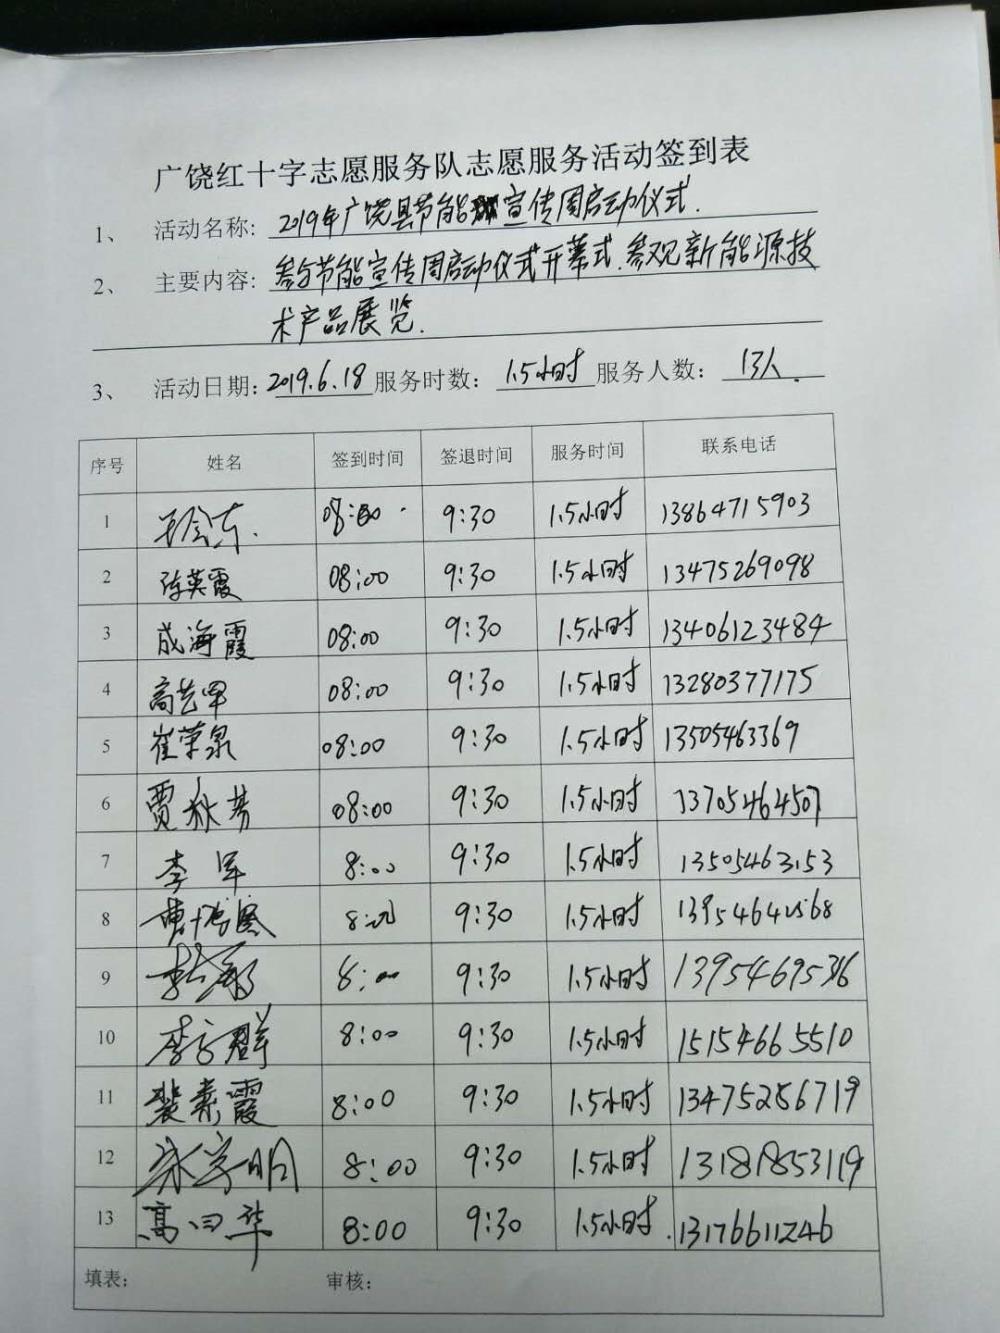 广饶红十字志愿服务队志愿服务活动签到表
1、 活动名称: 2019年广饶县节能宣传周启动仪式.
2、 主要内容: 参与节能宣传周启动仪式开幕式.参观新能源技
术产品展览.
3、 活动日期: 2019.6.18 服务时数: 1.5小时 服务人数: 13人.
序号 姓名 签到时间 签退时间 服务时间 联系电话
1 08:00 9:30 1.5小时 13864715903
2 陈英霞 08:00 9:30 1.5小时 13475269098
3 成海霞 08:00 9:30 1.5小时 13406123484
4 08:00 9:30 1.5小时 13280377175
5 崔荣泉 08:00 9:30 1.5小时 13505463369
6 贾秋芳 08:00 9:30 1.5小时 13705464507
7 李军 8:00 9:30 1.5小时 13505463153
8 8:00 9:30 1.5小时
9 8:00 9:30 1.5小时 1395469536
10 李方群 8:00 9:30 1.5小时 15154665510
11 裴素霞 8:00 9:30 1.5小时 13475286719
12 8:00 9:30 1.5小时 13181853119
13 8:00 9:30 1.5小时 13176611246
填表: 审核: